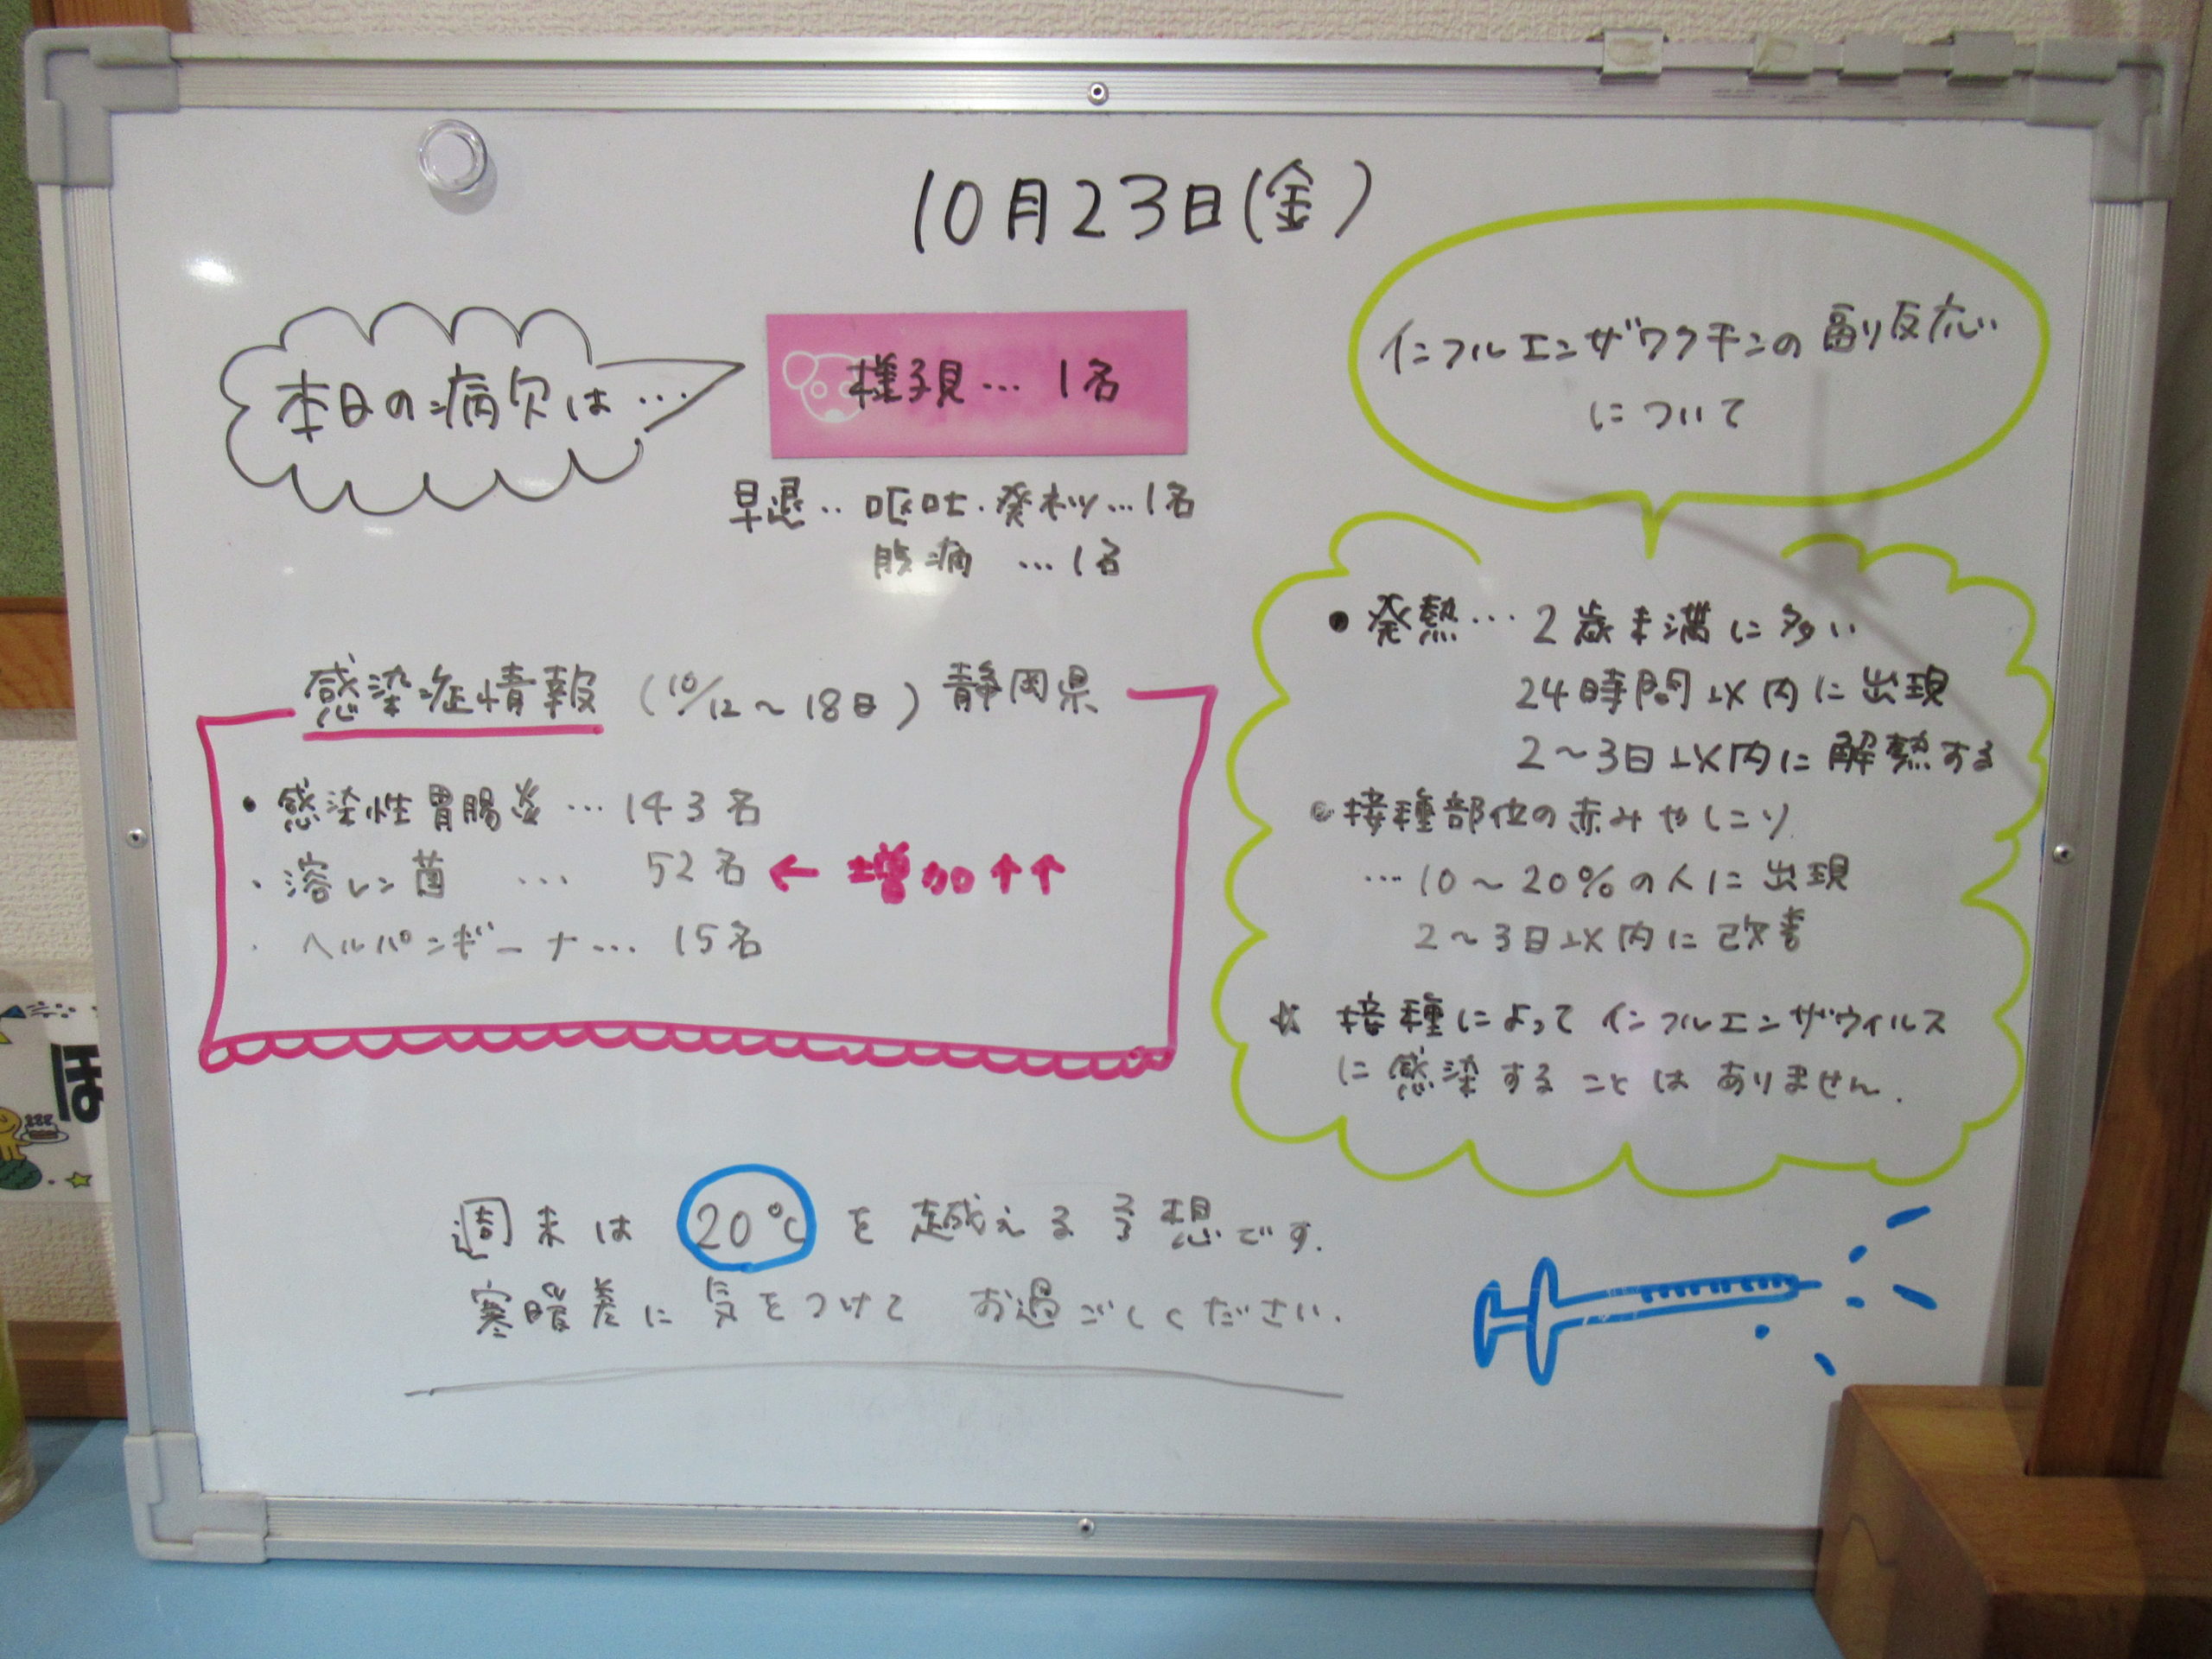 10月23日(金)
本日の病欠は…
様子見… 1名
早退‥ 嘔吐・発赤… 1名
腹痛 … 1名
感染症情報 (10/12～18日) 静岡県
• 感染性胃腸炎 … 143名
・溶レン菌 … 52名 ← 増加↑↑
・ヘルパンギーナ… 15名
インフルエンザワクチンの副反応
について
• 発熱… 2歳未満に多い
24時間以内に出現
2～3日以内に解熱する
• 接種部位の赤みやしこり
… 10～20%の人に出現
2～3日以内に改善
☆ 接種によってインフルエンザウィルス
に感染することはありません.
週末は 20℃ を越える予想です.
寒暖差に気をつけて お過ごしください.
ほ